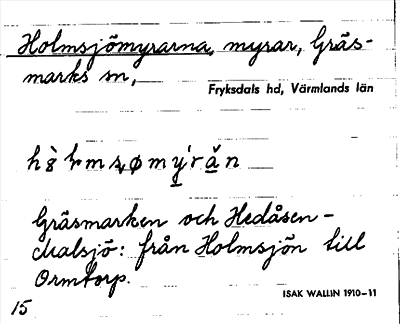 Holmsjömyrarna, myrar, Gräs-
marks sn,
Fryksdals hd, Värmlands län
Gräsmarken och Hedåsen-
Kalsjö: från Holmsjön till
Ormtorp.
ISAK WALLIN 1910–11
15